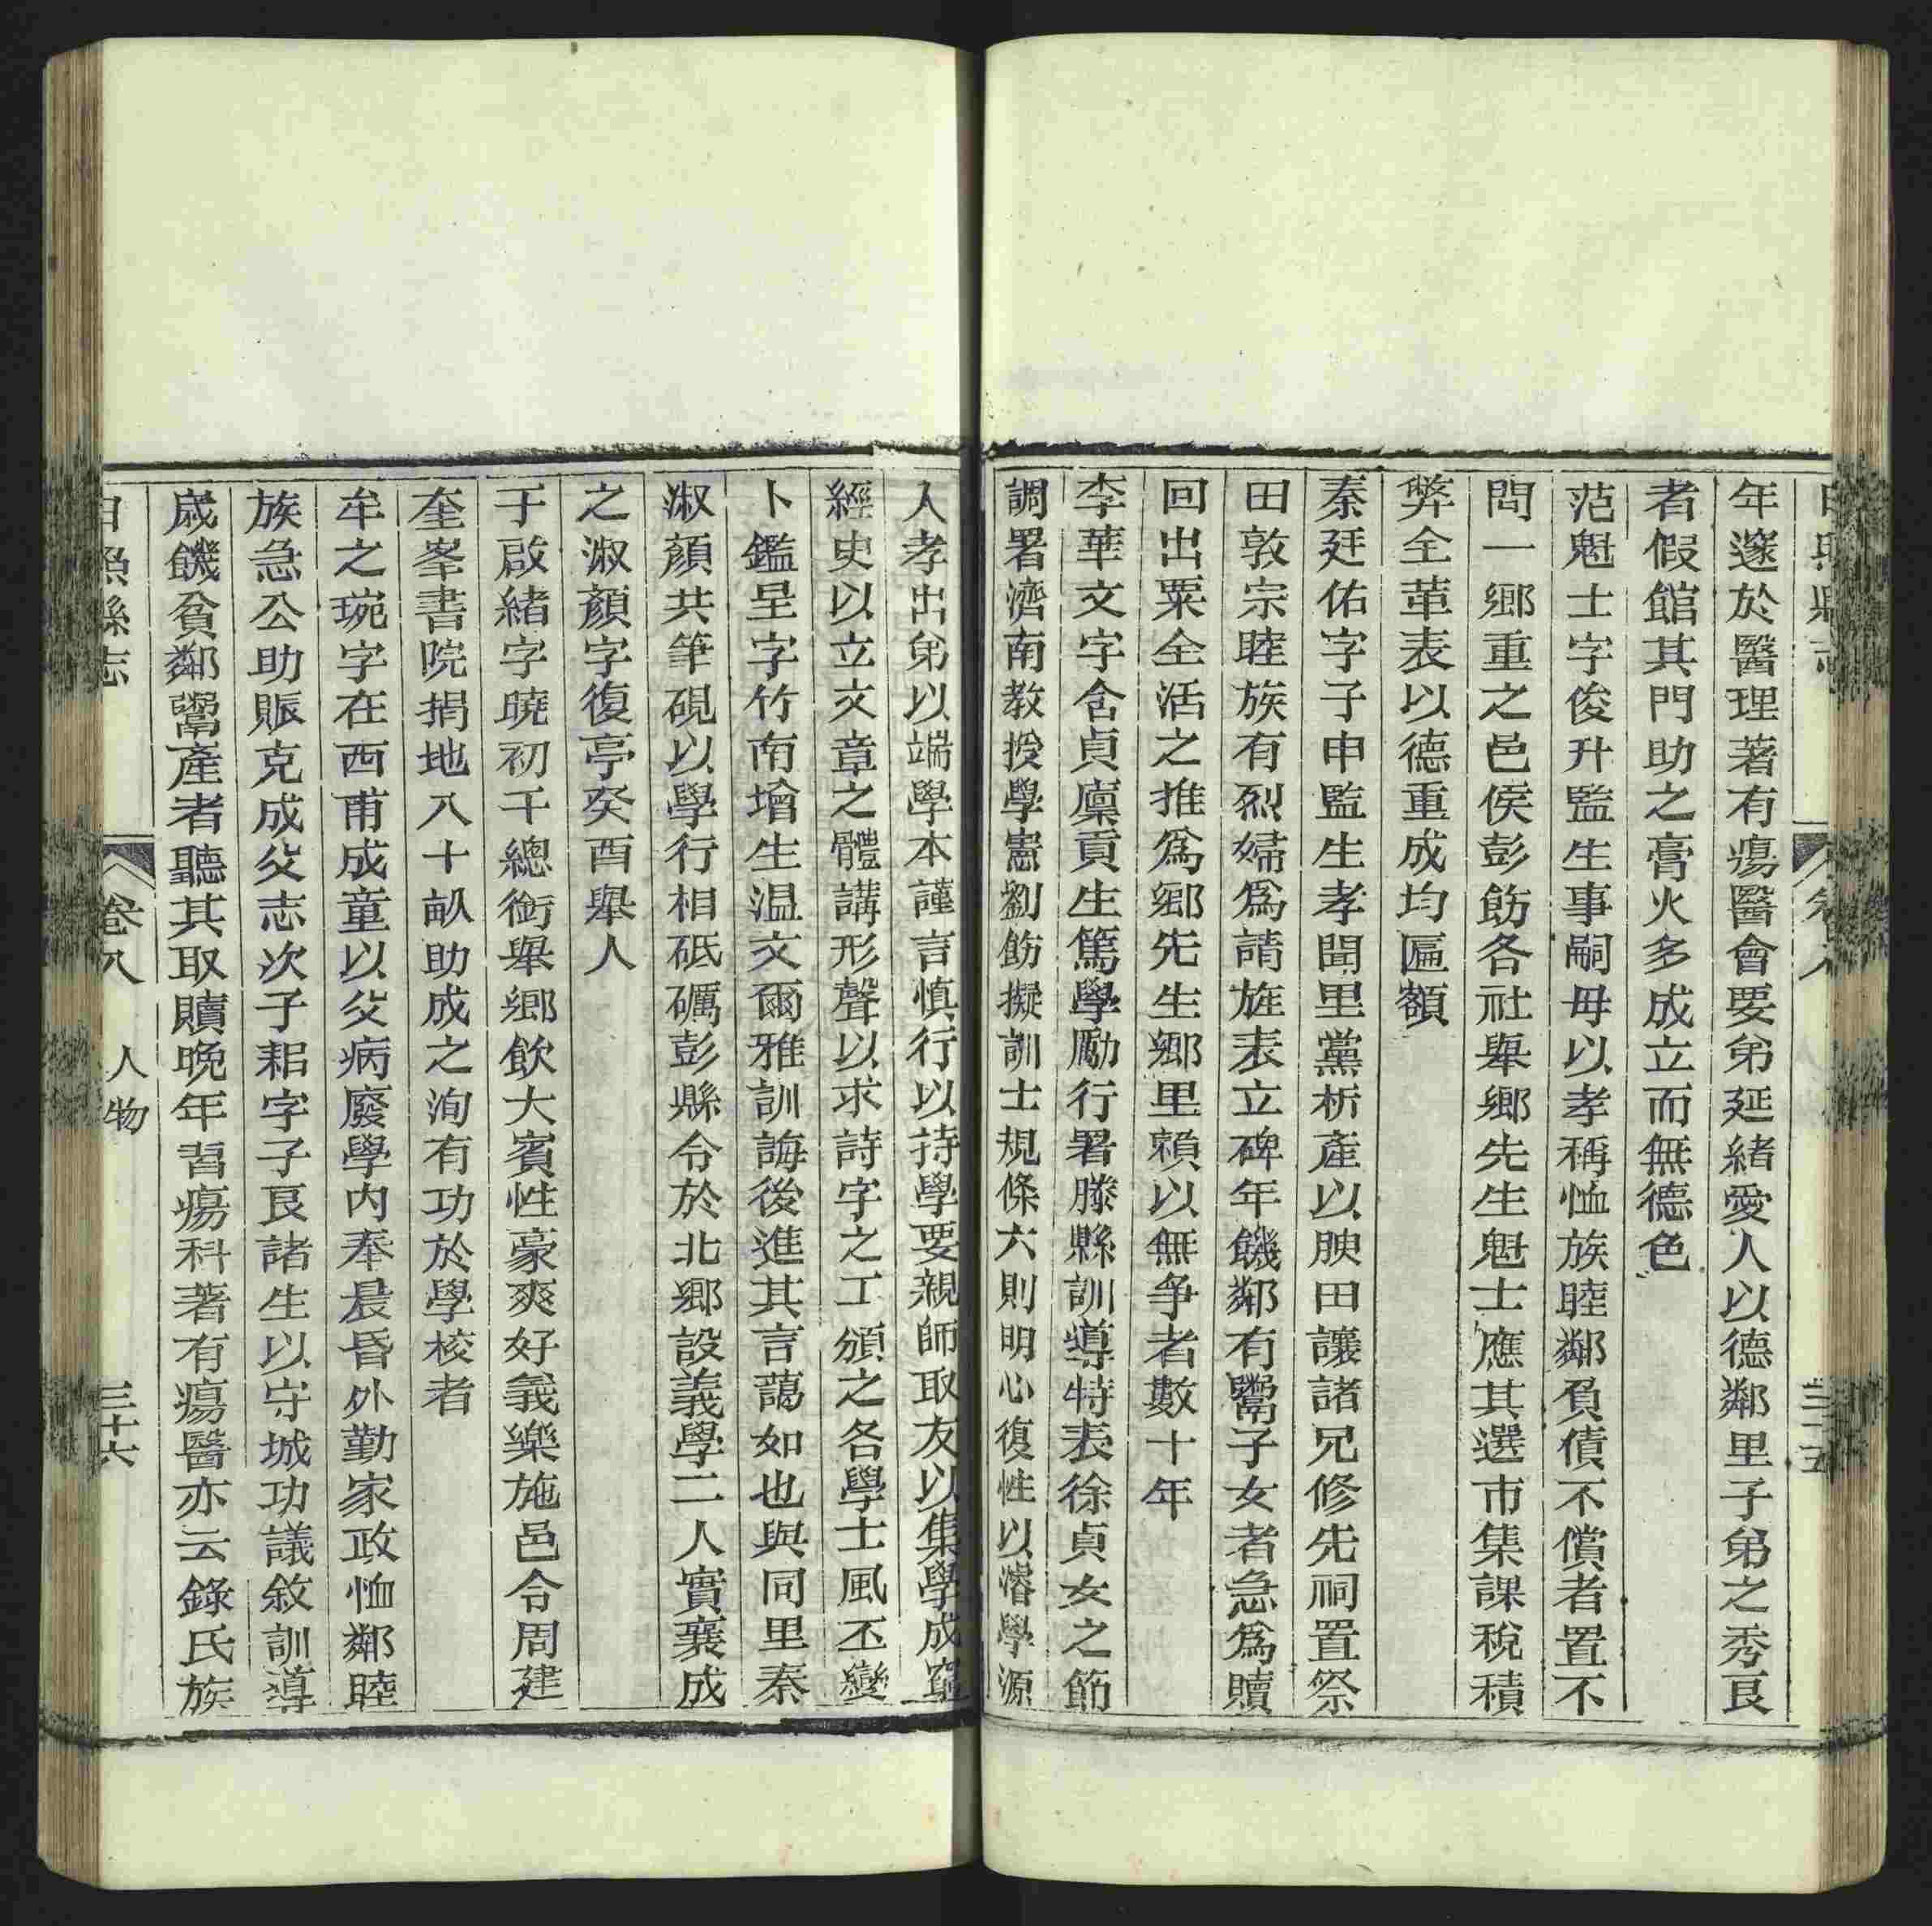 年邃於醫理著有瘍醫會要弟延緒愛人以德鄰里子弟之秀良
者假館其門助之膏火多成立而無德色
范魁士字俊升監生事嗣母以孝稱恤族睦鄰負債不償者置不
問一鄉重之邑侯彭飭各社舉鄉先生魁士應其選市集課稅積
弊全革表以德重成均匾額
秦廷佑字子申監生孝聞里黨析產以腴田讓諸兄修先祠置祭
田敦宗睦族有烈婦爲請旌表立碑年饑鄰有鬻子女者急爲贖
回出粟全活之推爲鄉先生鄉里賴以無爭者數十年
李華文字含貞廩貢生篤學勵行署滕縣訓導特表徐貞女之節
調署濟南教授學憲劉飭擬訓士規條六則明心復性以濬學源
入孝出弟以端學本謹言慎行以持學要親師取友以集學成窮
經史以立文章之體講形聲以求詩字之工頒之各學士風丕變
卜鑑呈字竹南增生温文爾雅訓誨後進其言藹如也與同里秦
淑顏共筆硯以學行相砥礪彭縣令於北鄉設義學二人實襄成
之淑顏字復亭癸酉舉人
于啟緒字曉初千總銜舉鄉飲大賓性豪爽好義樂施邑令周建
奎峯書院捐地八十畝助成之洵有功於學校者
牟之琬字在西甫成童以父病廢學内奉晨昏外勤家政恤鄰睦
族急公助賑克成父志次子耜字子良諸生以守城功議敘訓導
歲饑貧鄰鬻產者聽其取贖晚年習瘍科著有瘍醫亦云錄氏族
日照縣志
卷八
人物
三十六